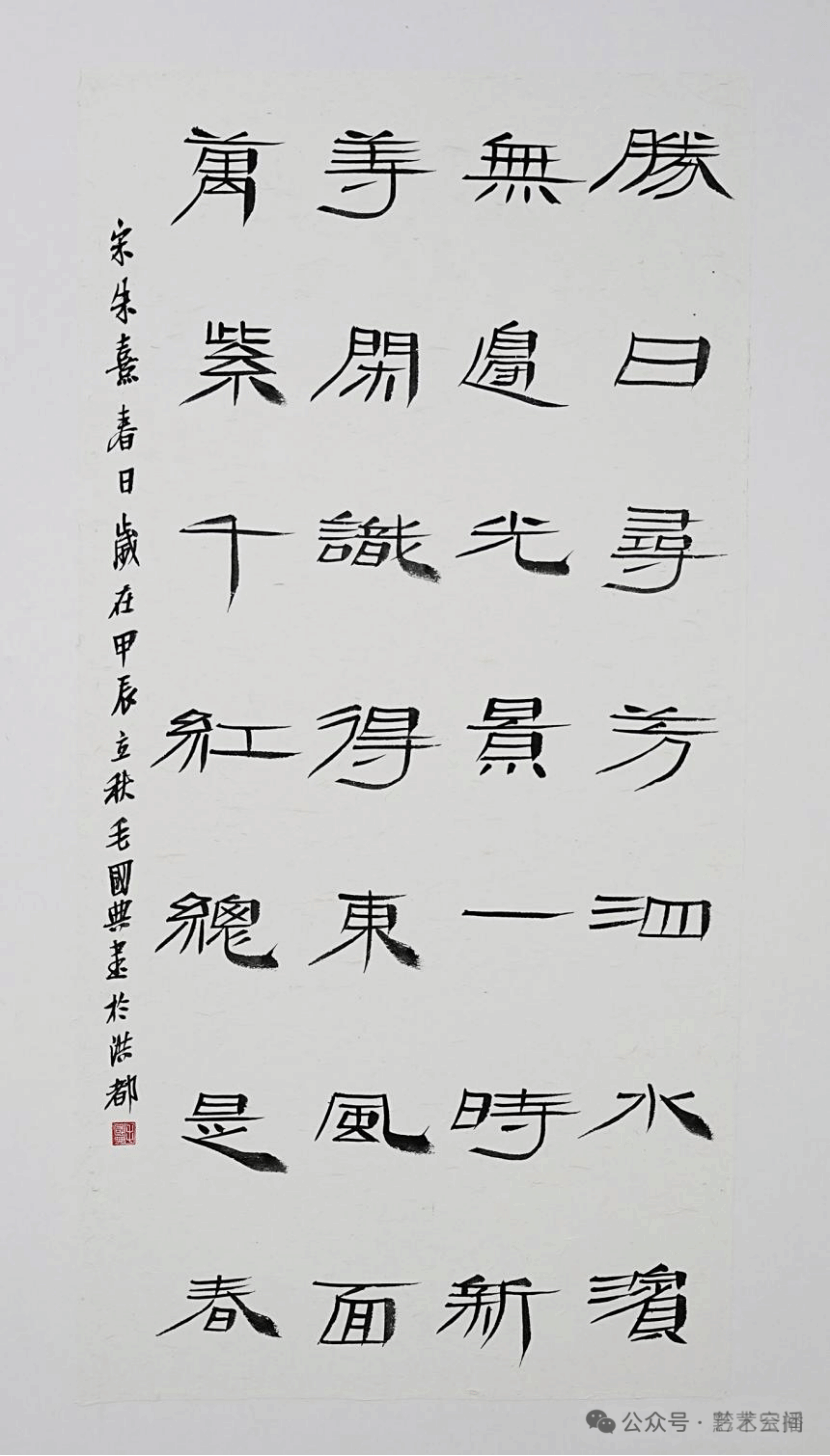 勝日尋芳泗水濱
無邊光景一時新
等閑識得東風面
萬紫千紅總是春
宋朱熹春日歲在甲辰立秋毛國典書於洪都
公众号 ·